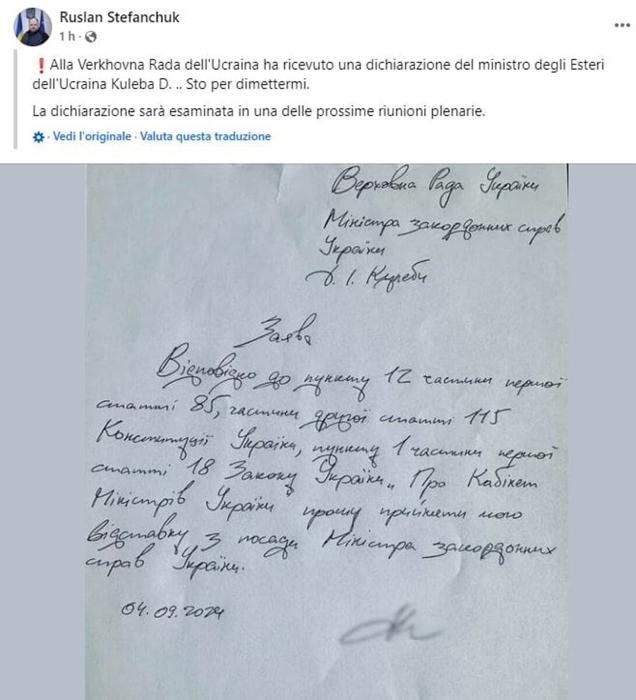 Ruslan Stefanchuk
1 h ·
❗Alla Verkhovna Rada dell'Ucraina ha ricevuto una dichiarazione del ministro degli Esteri
dell'Ucraina Kuleba D. .. Sto per dimettermi.
La dichiarazione sarà esaminata in una delle prossime riunioni plenarie.
· Vedi l'originale · Valuta questa traduzione
Верховна Рада України
Міністра закордонних справ
України
Д. І. Кулеби
Заява
Відповідно до пункту 12 частини першої
статті 85, частини другої статті 115
Конституції України, пункту 1 частини першої
статті 18 Закону України „Про Кабінет
Міністрів України прошу прийняти мою
відставку з посади Міністра закордонних
справ України.
04.09.2024